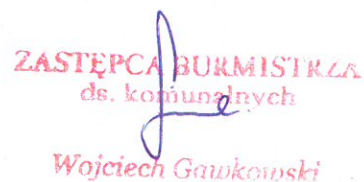 ZASTĘPCA BURMISTRZA
ds. komunalnych
Wojciech Gawkowski